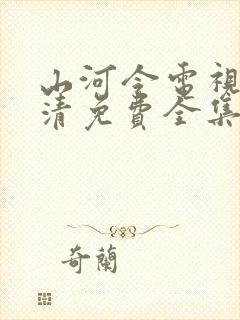 山河令電視
清免費全集
奇蘭